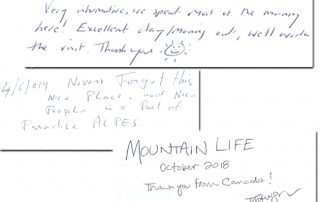 Very informative, we spent most of the morning
here! Excellent day/morning out, well worth
the visit. Thank you
4/6/019 Never Forget this
Nice Place and Nice
People in a Part of
Paradise ALPES
MOUNTAIN LIFE
October 2018
Thank you from Canada!